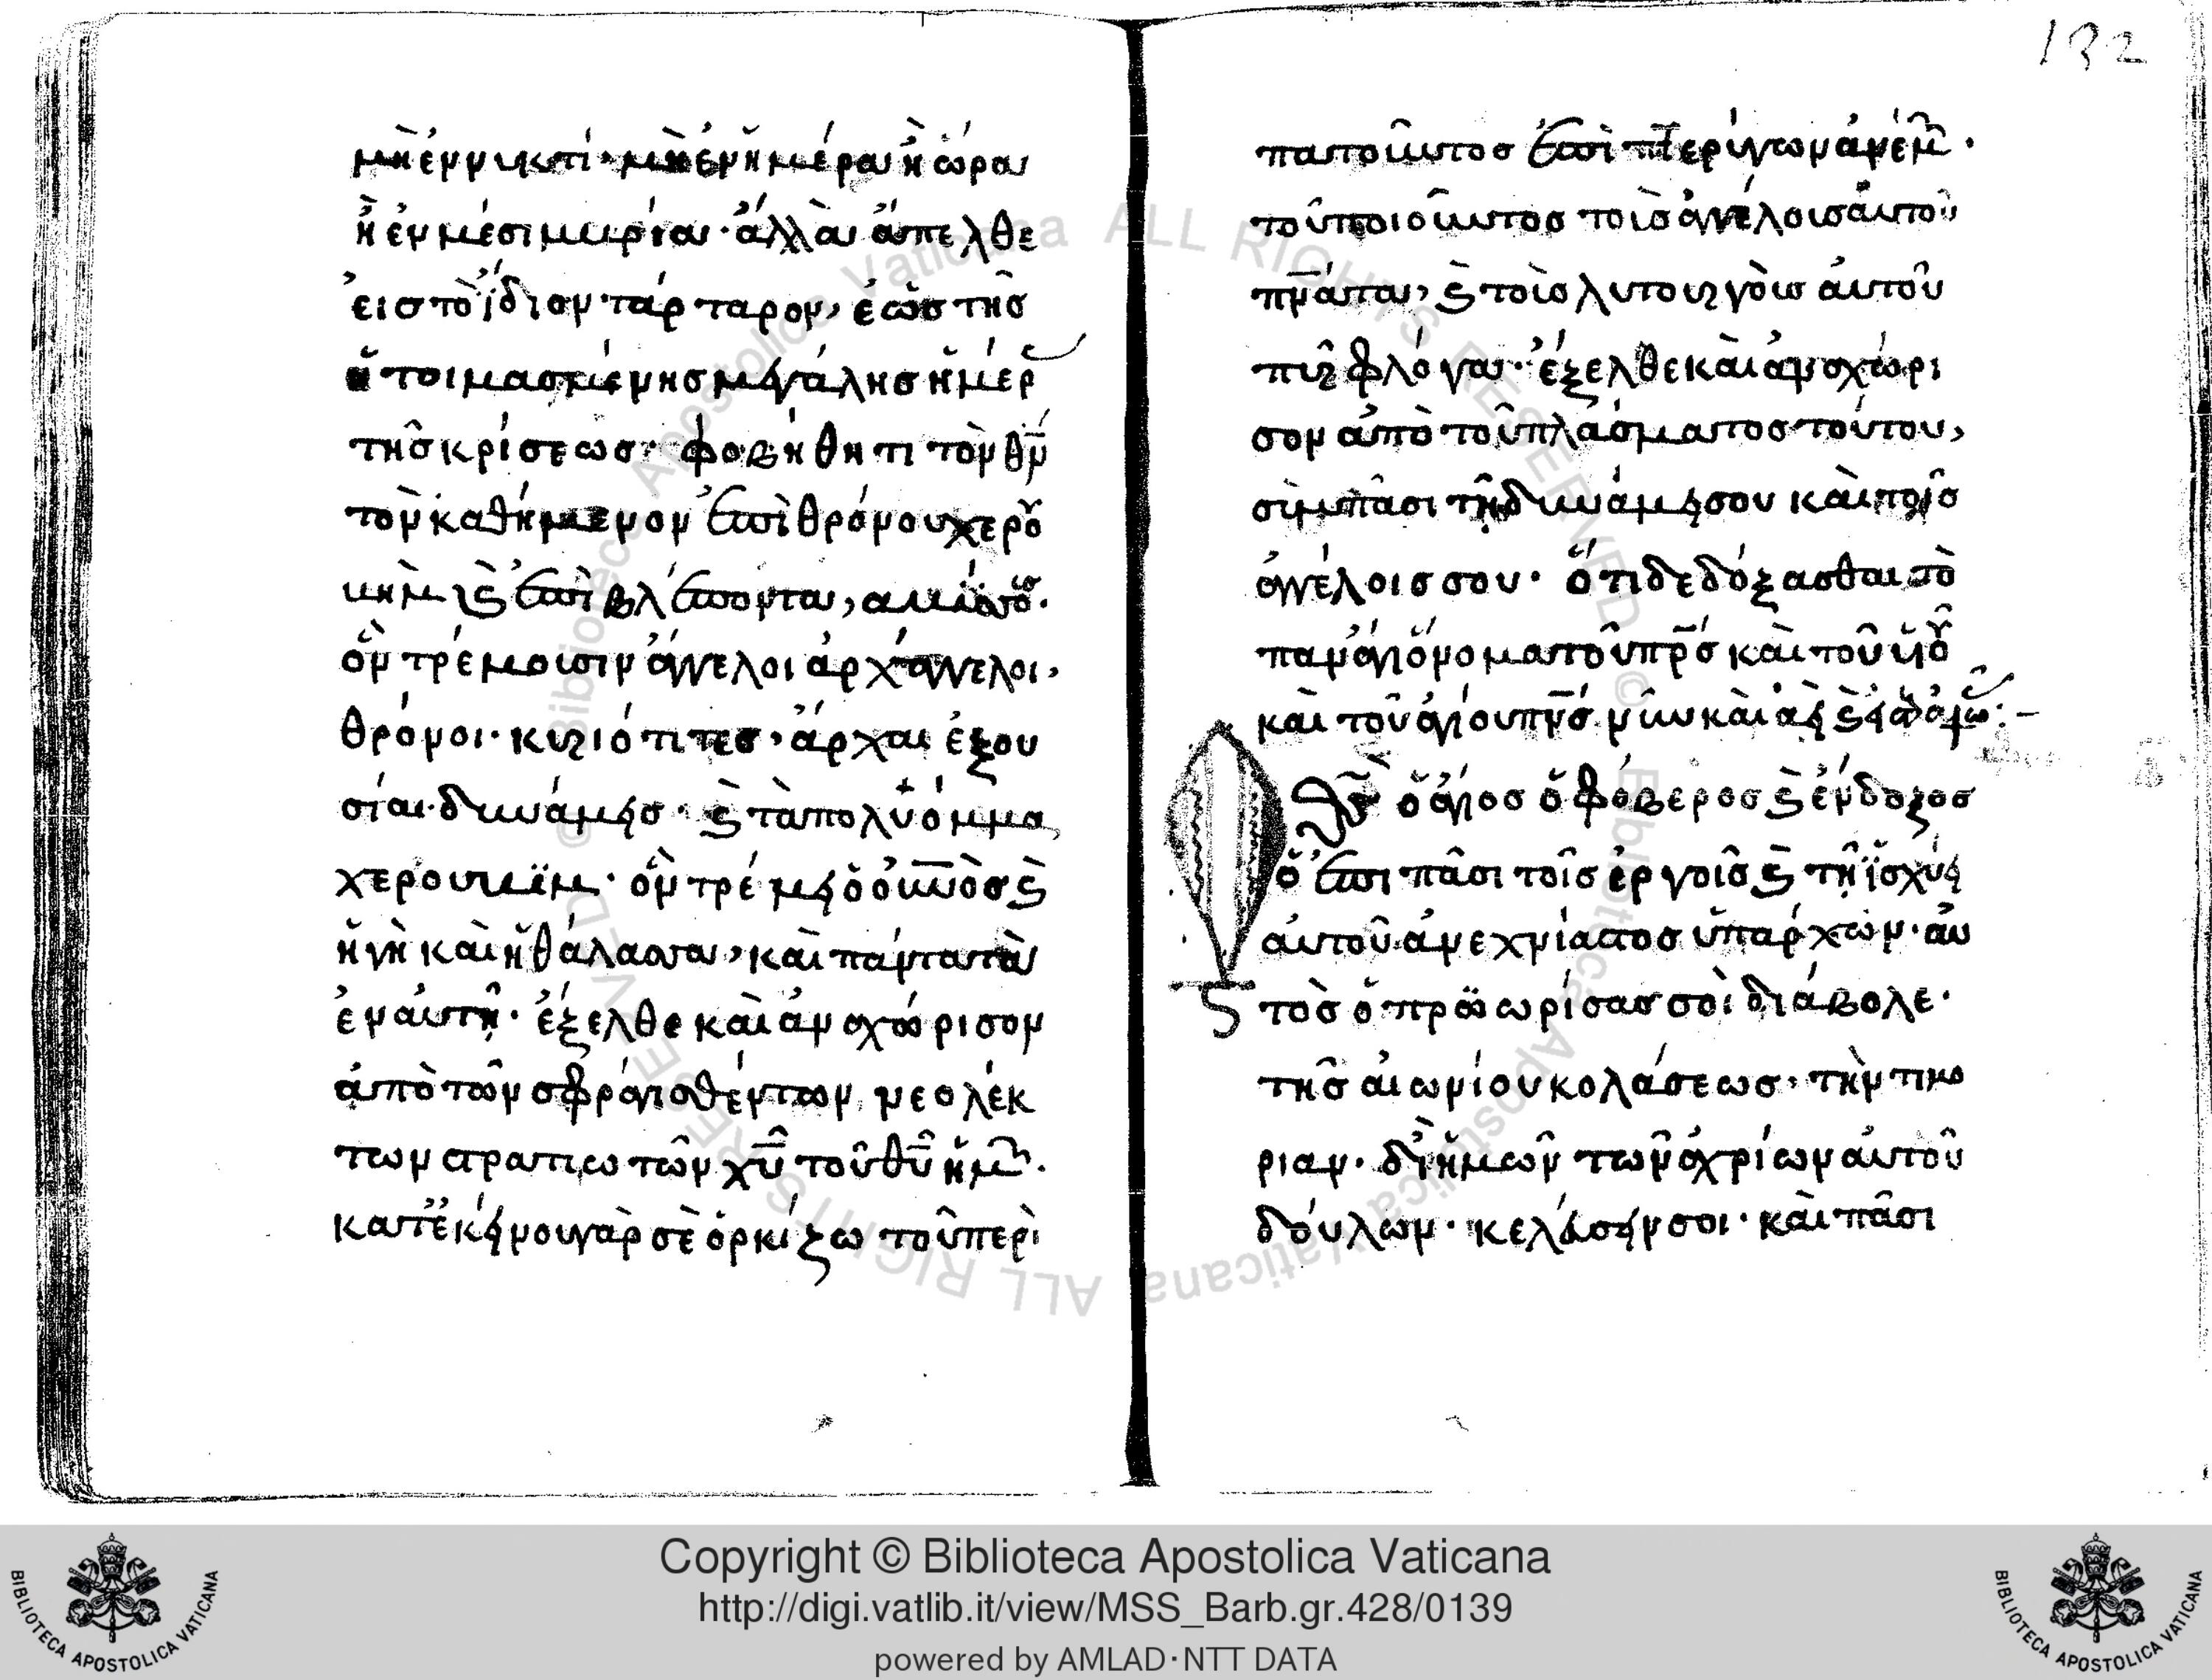 132
μὴ ἐν νυκτί· μὴ ἐν ἡμέρα ἢ ὥρα
ἢ ἐν μέσιμυρία· ἀλλὰ ἄπελθε
εἰς τὸ ἴδιον τάρταρον, ἐὼς τῆς
ἡτοιμασμένης μεγάλης ἡμέρ
τῆς κρίσεως· φοβήθητι τὸν θν
τὸν καθήμενον ἐπὶ θρόνου χερου
ὃν τρέμουσιν ἄγγελοι ἀρχάγγελοι,
θρόνοι· κυριότιτες, ἀρχαι ἐξου
σίαι· δυνάμεις· ϛ τὰ πολυόμμα
χερουυὶμ· ὃν τρέμει ὁ οὐνὸς ϛ
ἡ γὴ καὶ ἡ θάλασσα, καὶ πάντα τὰ
ἐν αὐτῆ· ἔξελθε καὶ ἀνοχώρισον
ἀπὸ τῶν σφραγισθέντων νεολέκ
των στρατιωτῶν χῦ τοῦ θῦ ἡμ·
κατ ἐκείνου γὰρ σὲ ὁρκίζω τοῦ περὶ
πατοῦντος ἐπὶ πτερύγων ἀνέμ·
τοῦ ποιοῦντος τοὶς ἀγγέλοις αὐτοῦ
πνατα, ϛ τοὶς λυτουργοὶς αὐτοῦ
πυρ φλόγα· ἔξελθε καὶ ἀνοχώρι
σον ἀπὸ τοῦ πλάσματος τούτου,
σὺμ πᾶσι τῆ δυνάμει σου καὶ τοῖς
ἀγγέλοις σου· ὅτι δεδόξασθαι τὸ
πανάγιόν ομα τοῦ πρς καὶ τοῦ υἱοῦ
καὶ τοῦ ἁγίου πνς νῦν καὶ ἀεὶ ϛ
ὁ ἅγιος ὁ φόβερος ϛ ἔνδοξος
ὁ ἐπι πᾶσι τοῖς ἐργοῖς ϛ τῆ ἰσχύει
αὐτοῦ ἀνεχνίαστος ὑπάρχων· αὐ
τὸς ὁ πρωωρίσας σοὶ διάβολε·
τῆς αἰωνίου κολάσεως· τὴν τιμο
ριαν· δἰ ἡμῶν τῶν ἀχρίων αὐτοῦ
δούλων· κελεύσει σοι· καὶ πᾶσι
Copyright © Biblioteca Apostolica Vaticana
http://digi.vatlib.it/view/MSS_Barb.gr.428/0139
powered by AMLAD·NTT DATA
BIBLIOTECA APOSTOLICA VATICANA
BIBLIOTECA APOSTOLICA VATICANA